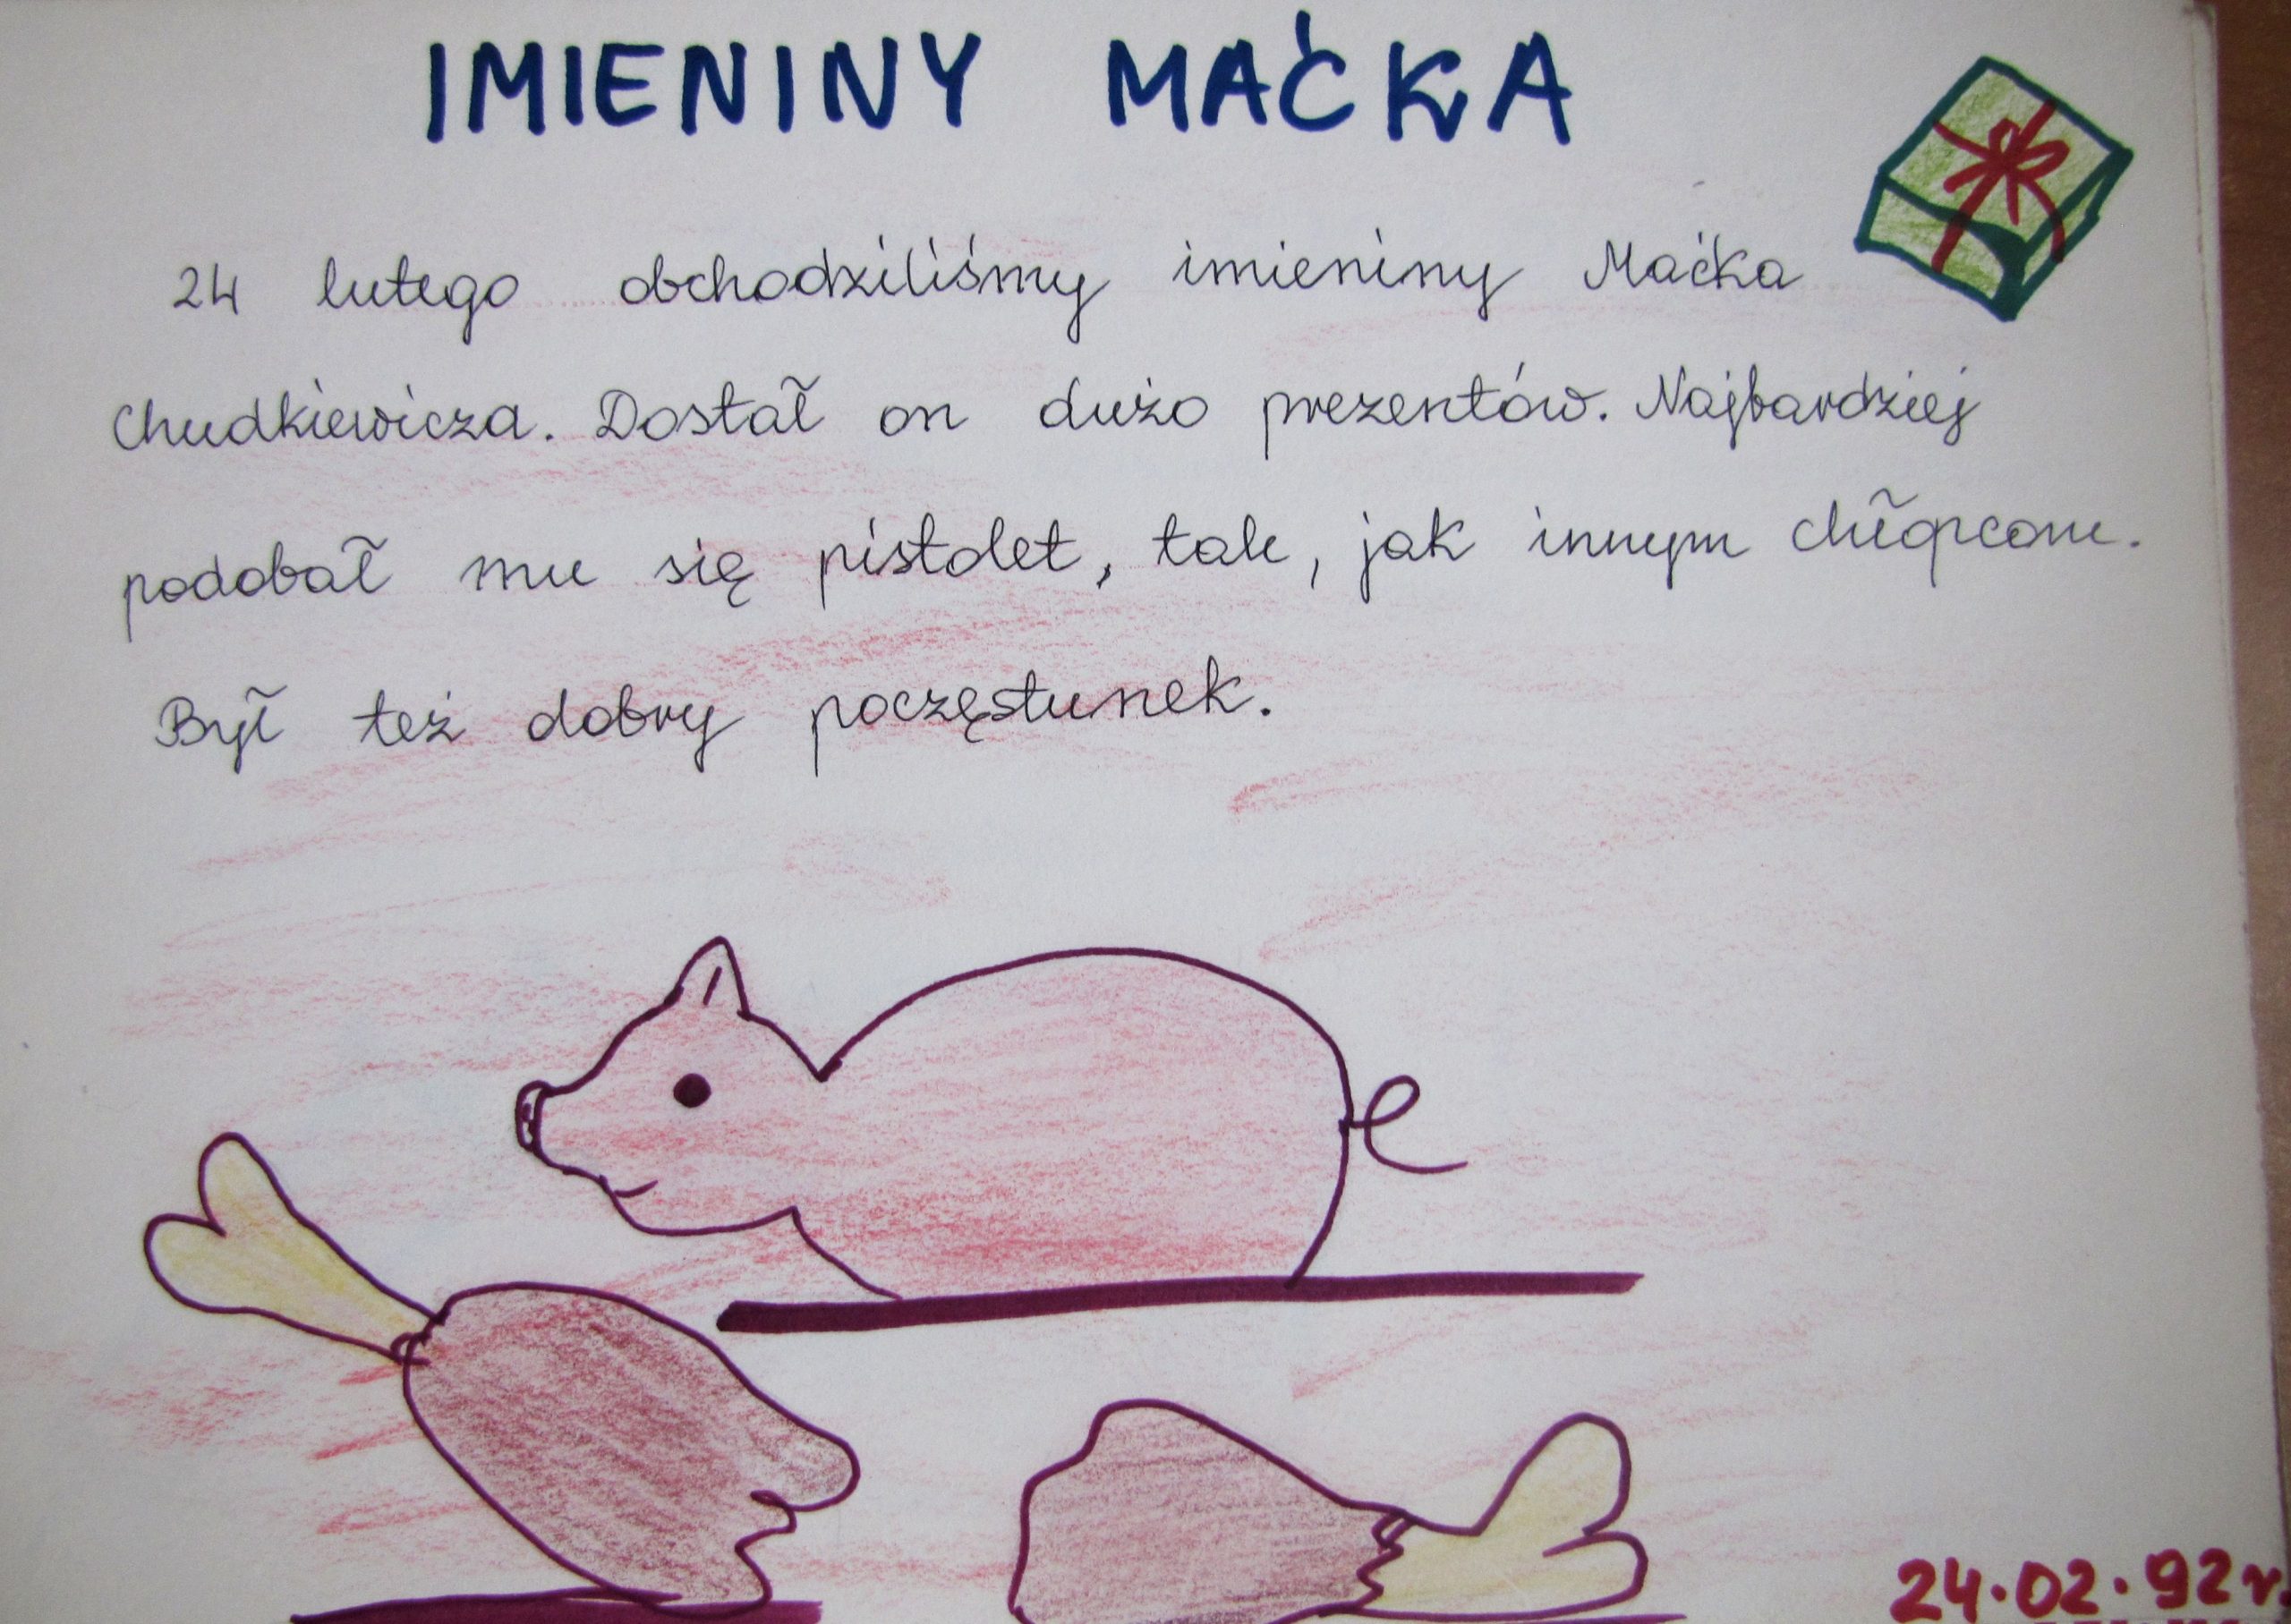 IMIENINY MAĆKA
24 lutego obchodziliśmy imieniny Maćka
Chudkiewicza. Dostał on dużo prezentów. Najbardziej
podobał mu się pistolet, tak, jak innym chłopcom.
Był też dobry poczęstunek.
24.02.92r.